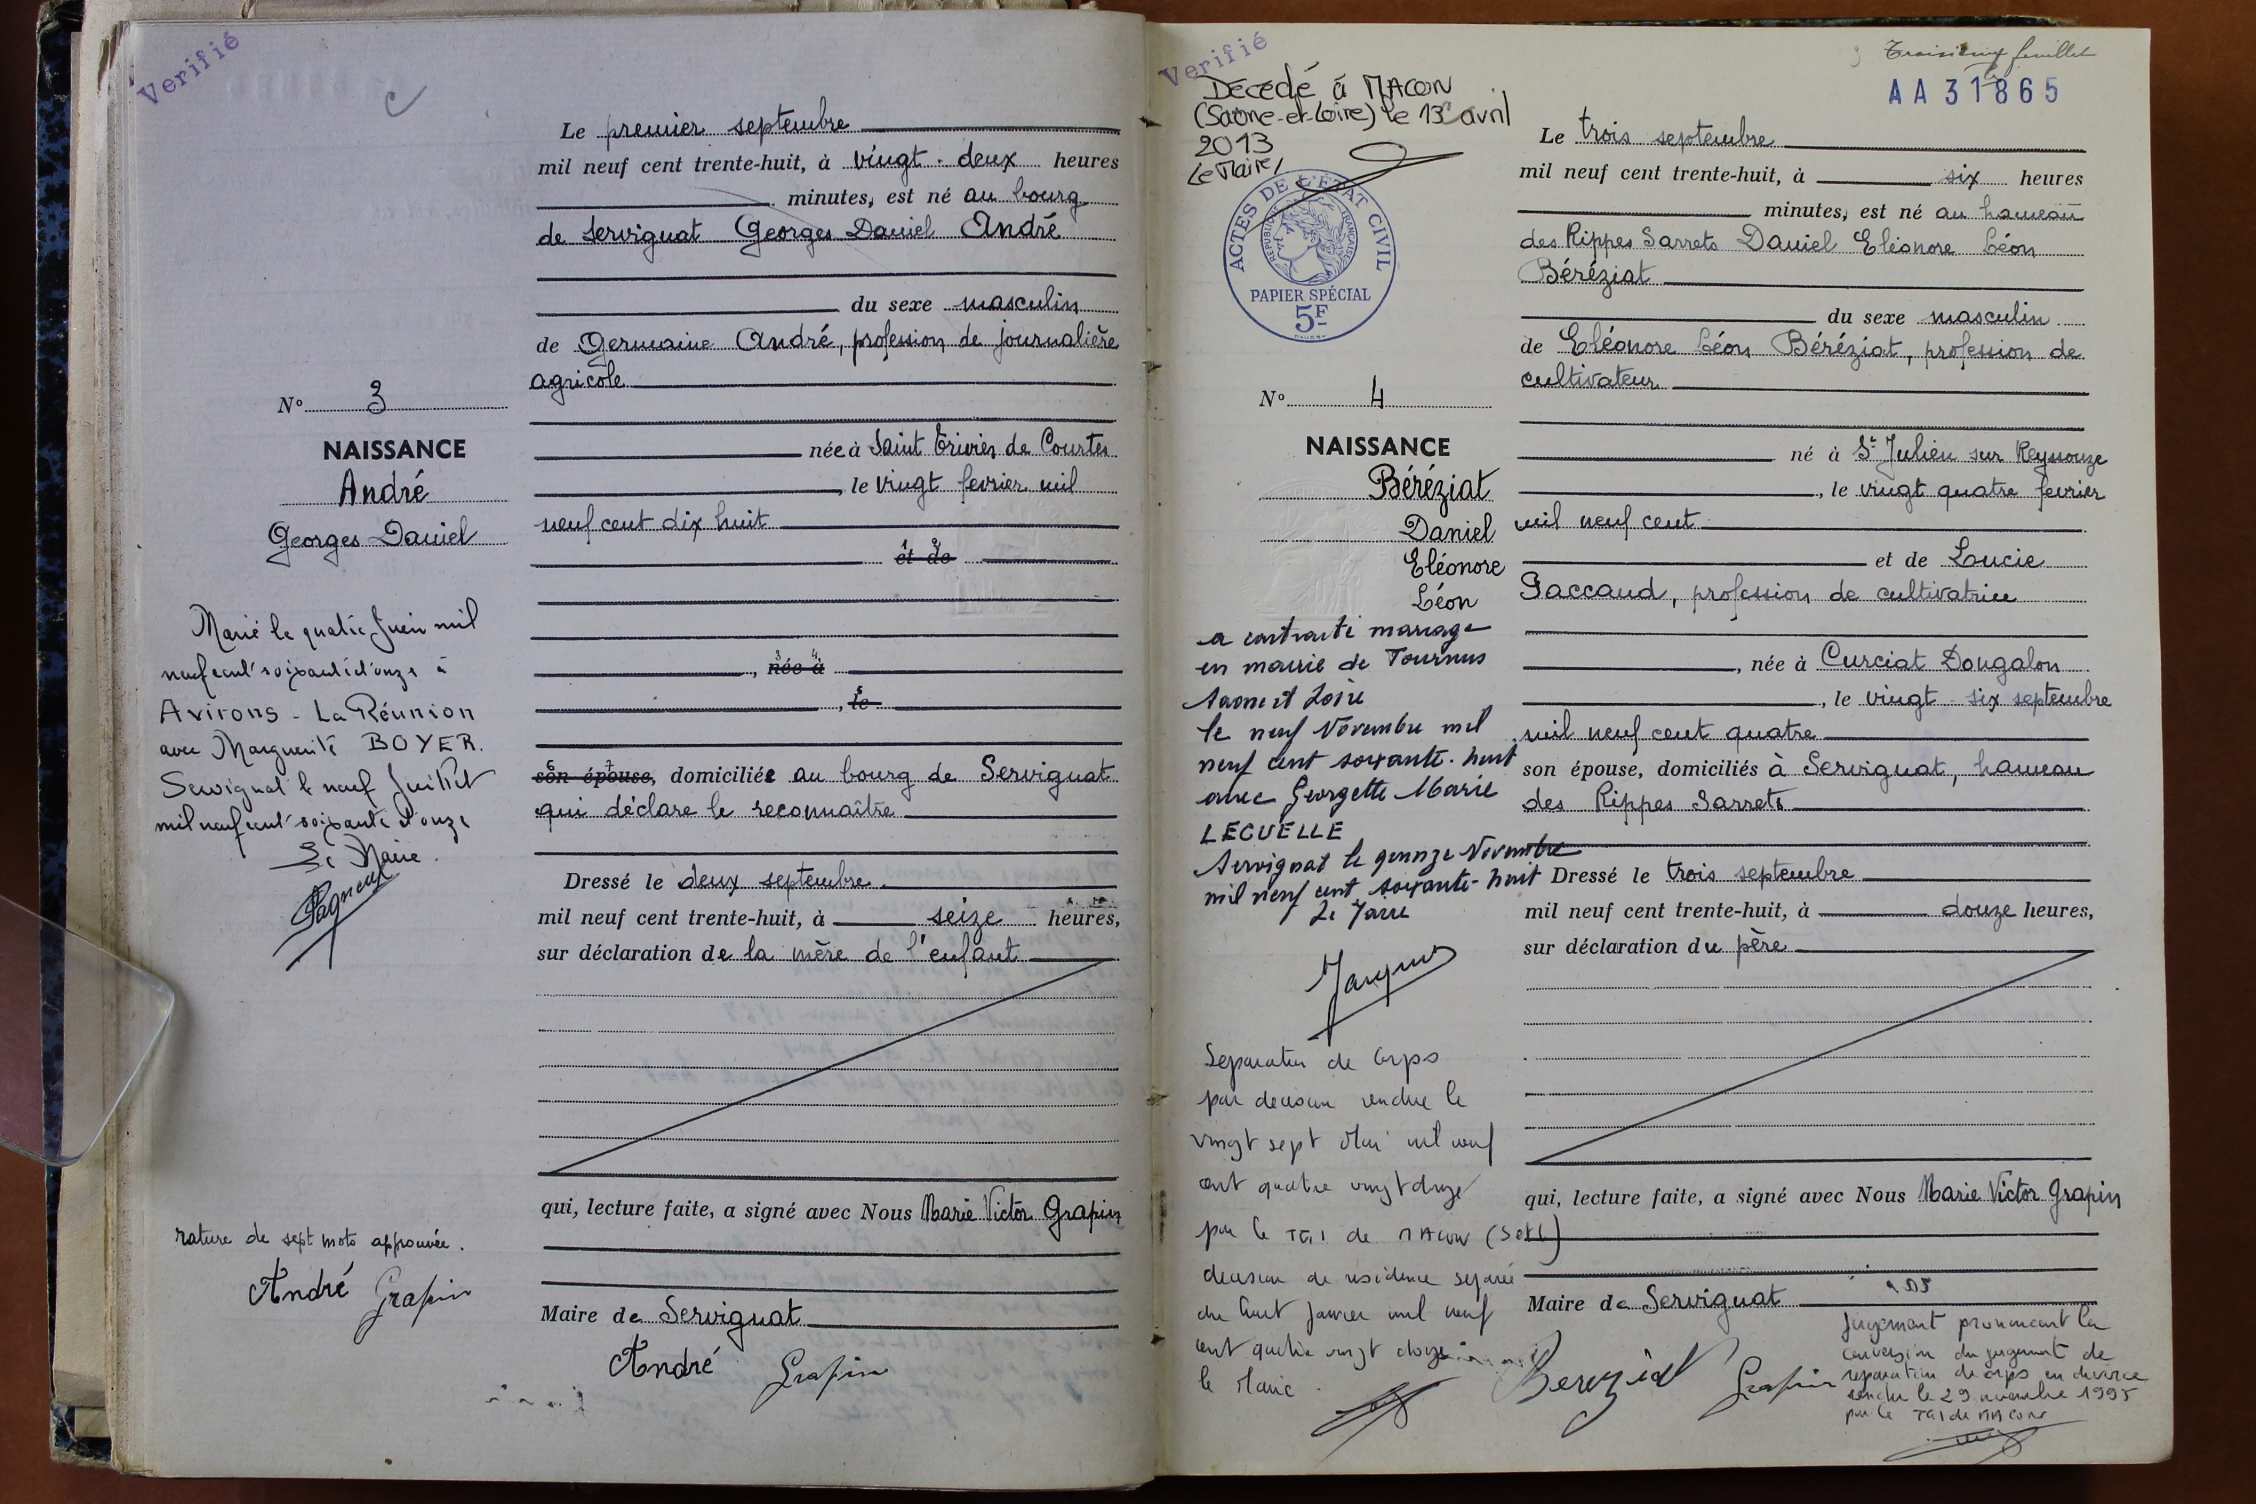 Verifié
Le premier septembre
mil neuf cent trente-huit, à vingt-deux heures
minutes, est né au bourg
de Servignat Georges Daniel André
du sexe masculin
de Germaine André, profession de journalière
agricole
née à Saint Trivier de Courtes
, le vingt fevrier mil
neuf cent dix huit
et de
, née à
, le
son épouse, domiciliée au bourg de Servignat
qui déclare le reconnaître
Dressé le deux septembre
mil neuf cent trente-huit, à seize heures,
sur déclaration de la mère de l'enfant
qui, lecture faite, a signé avec Nous Marie Victor Grapin
Maire de Servignat
André Grapin
N° 3
NAISSANCE
André
Georges Daniel
Marié le quatre Juin mil
neuf cent soixante et onze à
Avirons - La Réunion
avec Marguerite BOYER.
Servignat le neuf Juillet
mil neuf cent soixante et onze
Le Maire.
rature de sept mots approuvée.
André Grapin
Verifié
Troisième feuillet
AA 31865
Décédé à MACON
(Saône-et-Loire) le 13 avril
2013
Le Maire,
ACTES DE L'ÉTAT CIVIL
RÉPUBLIQUE FRANÇAISE
PAPIER SPÉCIAL
5F
N° 4
NAISSANCE
Béréziat
Daniel
Eléonore
Léon
a contracté mariage
en mairie de Tournus
Saone et Loire
le neuf Novembre mil
neuf cent soixante-huit
avec Georgette Marie
LECUELLE
Servignat le quinze Novembre
mil neuf cent soixante-huit
Le Maire
Separation de corps
par decision rendue le
vingt sept Mai mil neuf
cent quatre vingt
par le TGI de MACON (S et L)
decision de residence separée
du huit janvier mil neuf
cent quatre vingt douze
le Maire
Le trois septembre
mil neuf cent trente-huit, à six heures
minutes, est né au hameau
des Rippes Sarrets Daniel Eléonore Léon
Béréziat
du sexe masculin
de Eléonore Léon Béréziat, profession de
cultivateur
né à St Julien sur Reyssouze
, le vingt quatre fevrier
mil neuf cent
et de Lucie
Paccaud, profession de cultivatrice
, née à Curciat Dongalon
, le vingt-six septembre
mil neuf cent quatre
son épouse, domiciliés à Servignat, hameau
des Rippes Sarrets
Dressé le trois septembre
mil neuf cent trente-huit, à douze heures,
sur déclaration du père
qui, lecture faite, a signé avec Nous Marie Victor Grapin
Maire de Servignat
Bereziat Grapin
Jugement prononcant la
conversion du jugement de
separation de corps en divorce
rendu le 29 novembre 1995
par le TGI de MACON